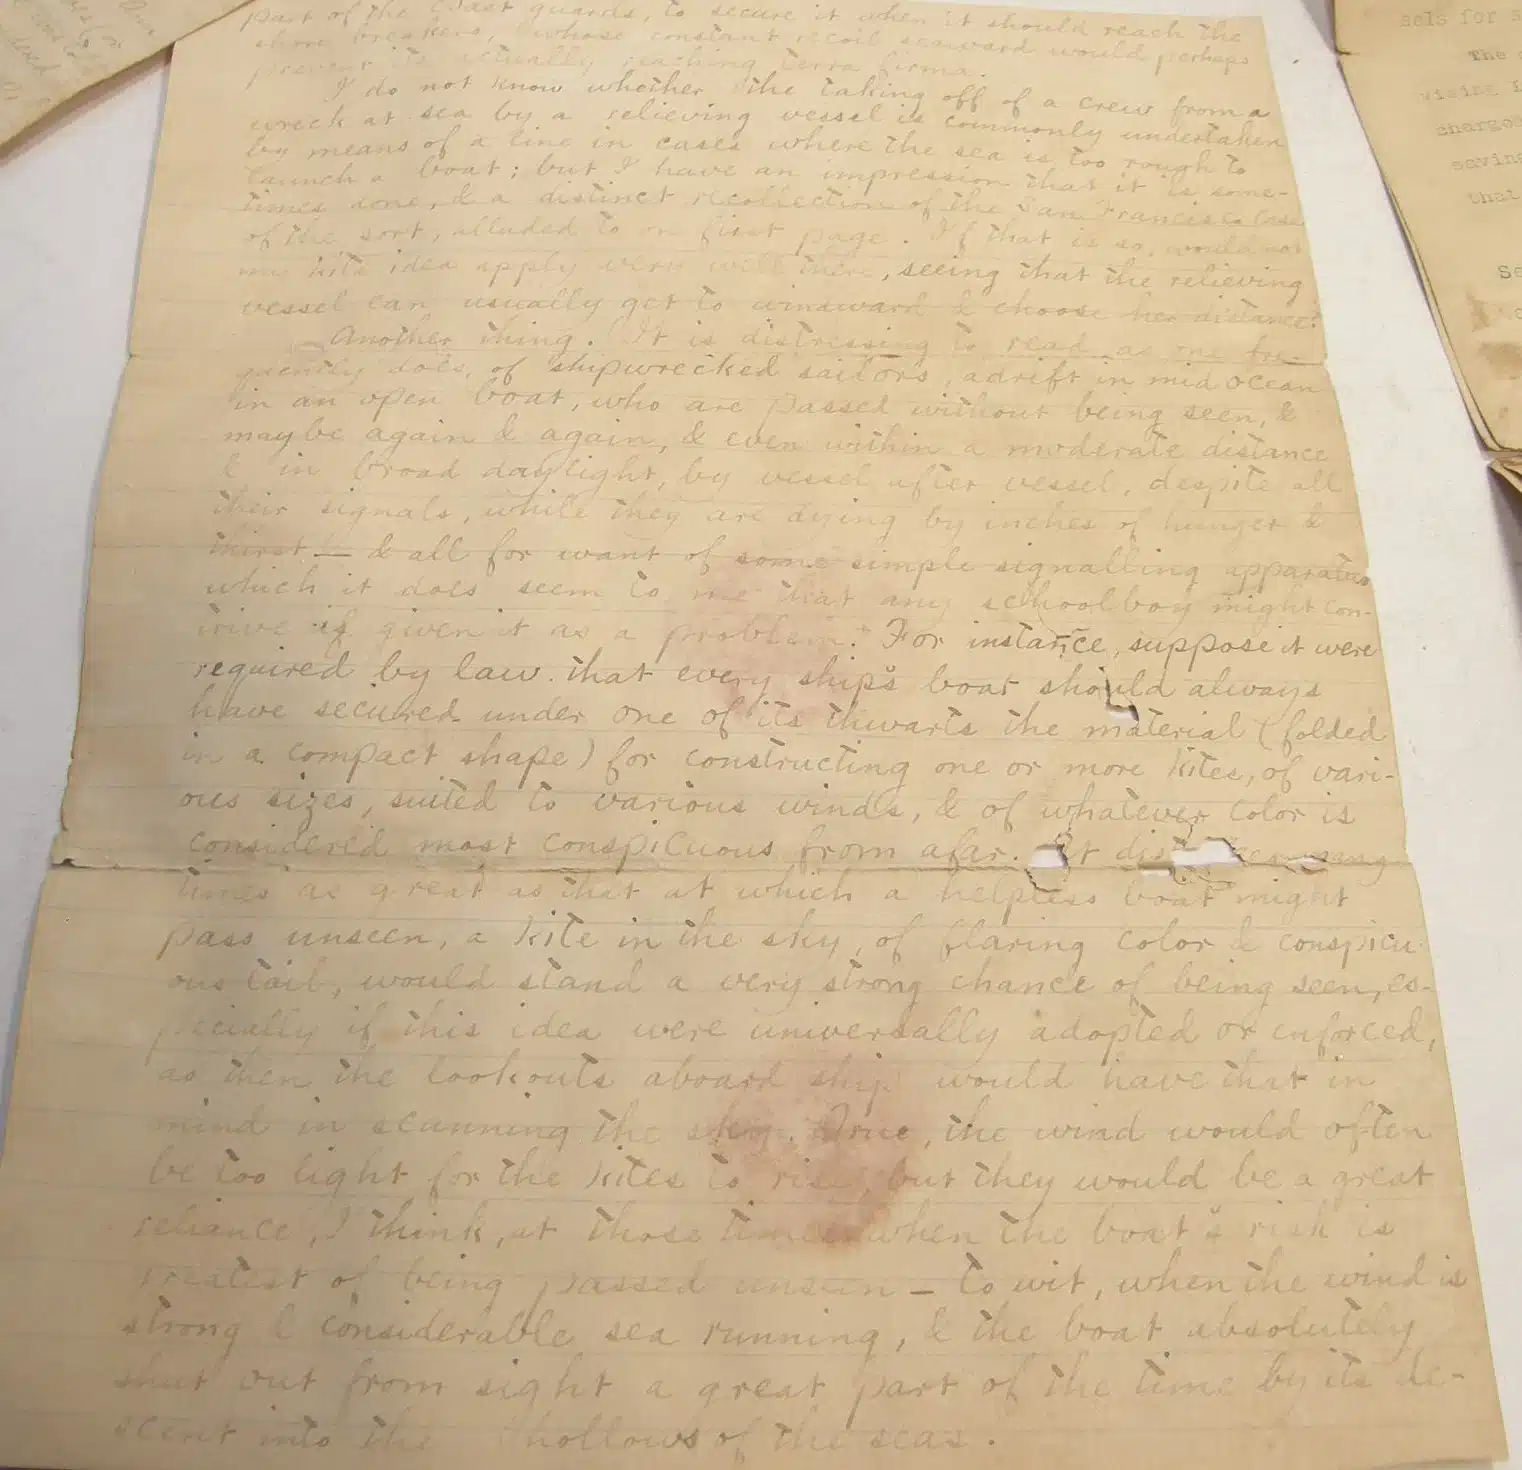 part of the coast guards, to secure it when it should reach the
shore breakers, whose constant recoil seaward would perhaps
prevent its actually reaching terra firma.
I do not know whether the taking off of a crew from a
wreck at sea by a relieving vessel is commonly undertaken
by means of a line in cases where the sea is too rough to
launch a boat; but I have an impression that it is some-
times done, & a distinct recollection of the San Francisco case
of the sort, alluded to on first page. If that is so, would not
my kite idea apply very well there, seeing that the relieving
vessel can usually get to windward & choose her distance?
Another thing. It is distressing to read, as one fre-
quently does, of shipwrecked sailors, adrift in mid ocean
in an open boat, who are passed without being seen, &
maybe again & again, & even within a moderate distance
& in broad daylight, by vessel after vessel, despite all
their signals, while they are dying by inches of hunger &
thirst — & all for want of some simple signalling apparatus
which it does seem to me that any schoolboy might con-
trive if given it as a problem. For instance, suppose it were
required by law that every ship's boat should always
have secured under one of its thwarts the material (folded
in a compact shape) for constructing one or more kites, of vari-
ous sizes, suited to various winds, & of whatever color is
considered most conspicuous from afar. At many
times as great as that at which a helpless boat might
pass unseen, a kite in the sky, of flaring color & conspicu-
ous tail, would stand a very strong chance of being seen, es-
pecially if this idea were universally adopted or enforced,
as then the lookouts aboard ship would have that in
mind in scanning the sky. True, the wind would often
be too light for the kites to rise, but they would be a great
reliance, I think, at those times when the boat's risk is
greatest of being passed unseen — to wit, when the wind is
strong & considerable sea running, & the boat absolutely
shut out from sight a great part of the time by its de-
scent into the hollows of the seas.
sels for s
The
vising
charge
saving
that
Se